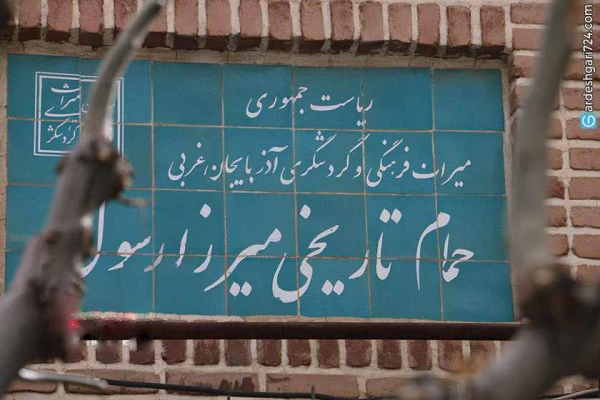 ریاست جمهوری
میراث فرهنگی و گردشگری آذربایجان غربی
حمام تاریخی میرزا رسول
میراث
گردشگری
ardeshgari724.com